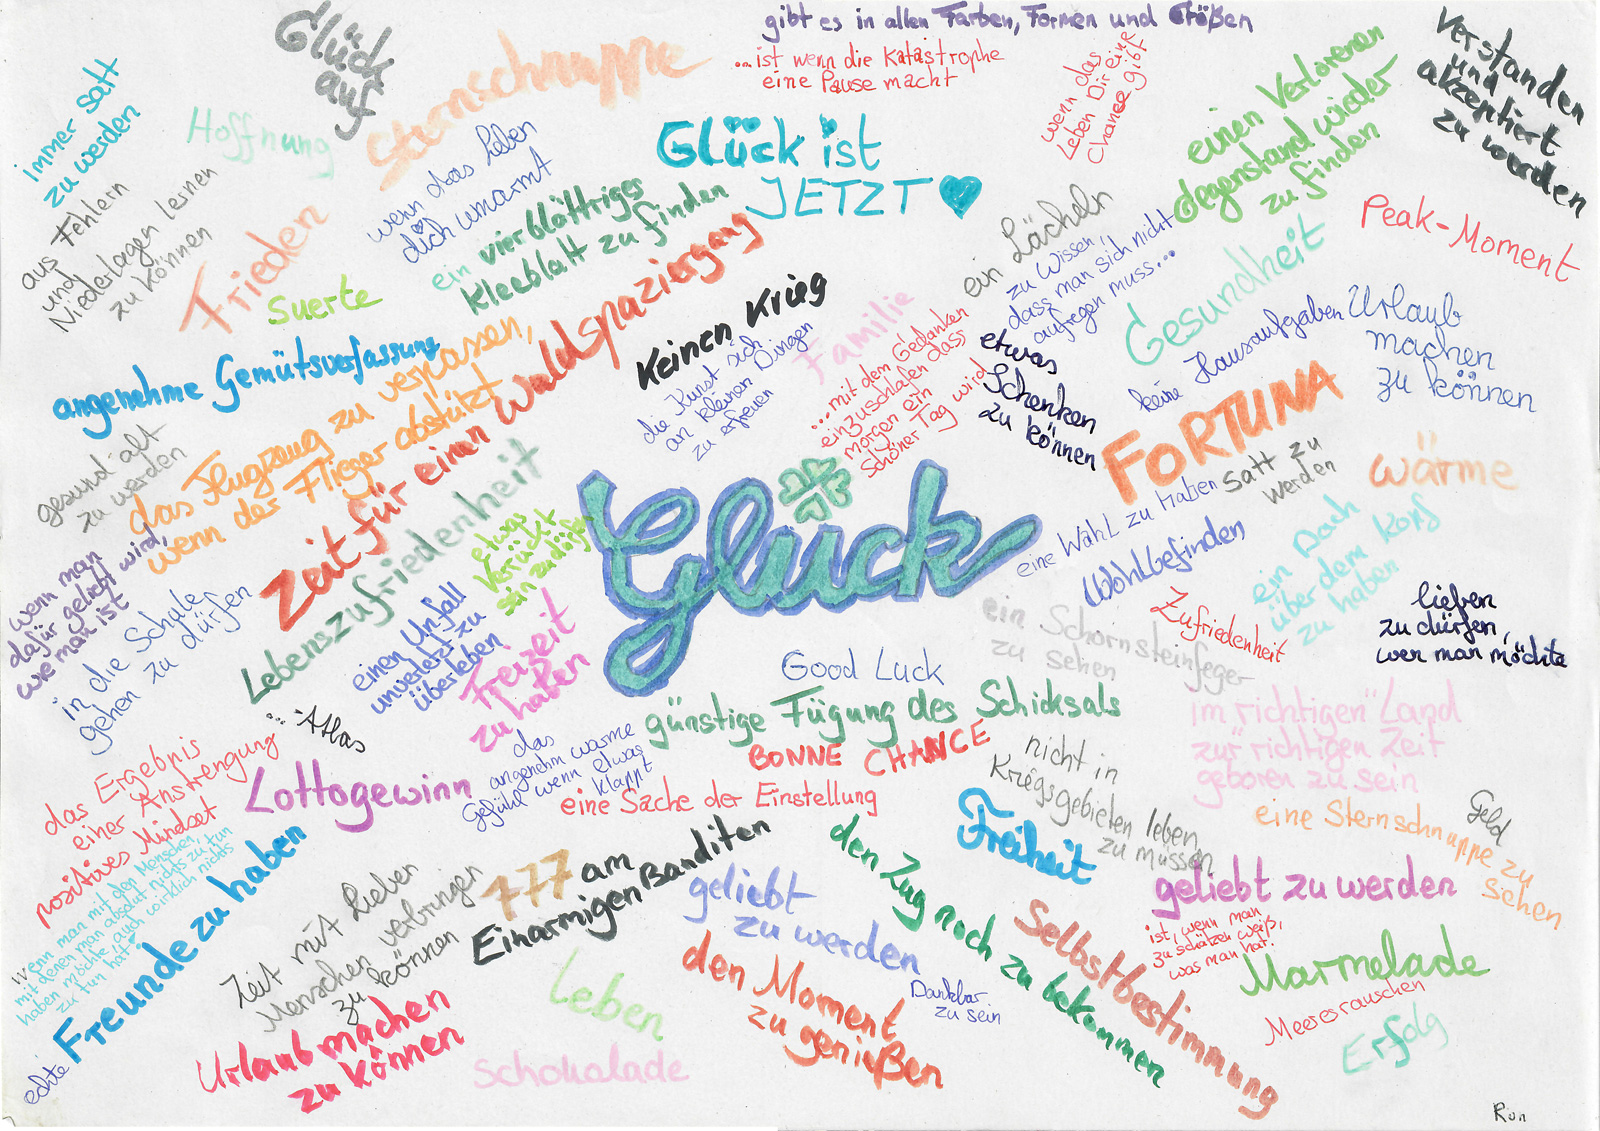 Glück
auf
Sternschnuppe
gibt es in allen Farben, Formen und Größen
...ist wenn die Katastrophe
eine Pause macht
wenn das
Leben Dir eine
Chance gibt
einen Verlorenen
Gegenstand wieder
zu finden
Verstanden
und
akzeptiert
zu werden
immer satt
zu werden
Hoffnung
wenn das Leben
dich umarmt
Glück ist
JETZT
aus Fehlern
und
Niederlagen lernen
zu können
Frieden
Suerte
ein vierblättriges
Kleeblatt zu finden
ein Lächeln
zu Wissen,
dass man sich nicht
aufregen muss...
Peak-Moment
Gesundheit
angenehme Gemütsverfassung
das Flugzeug zu verpassen,
wenn der Flieger abstützt
Zeit für einen Waldspaziergang
Keinen Krieg
die Kunst sich
an kleinen Dingen
zu erfreuen
Familie
...mit dem Gedanken
einzuschlafen dass
morgen ein
schöner Tag wird
etwas
Schenken
zu können
keine Hausaufgaben
Urlaub
machen
zu können
FORTUNA
gesund alt
zu werden
Lebenszufriedenheit
etwas
Verückt
sein zu dürfen
Glück
eine Wahl zu haben
satt zu
werden
wärme
Wohlbefinden
ein Dach
über dem Kopf
zu haben
wenn man
dafür geliebt wird,
wie man ist
in die Schule
gehen zu dürfen
einen Unfall
unverletzt zu
überleben
Freizeit
zu haben
ein Schornsteinfeger
zu sehen
Zufriedenheit
lieben
zu dürfen,
wen man möchte
Good Luck
günstige Fügung des Schicksals
BONNE CHANCE
...-Atlas
das
angenehm warme
Gefühl wenn etwas
klappt
im "richtigen" Land
zur "richtigen" Zeit
geboren zu sein
das Ergebnis
einer Anstrengung
positives Mindset
Lottogewinn
eine Sache der Einstellung
nicht in
Kriegsgebieten leben
zu müssen
Freiheit
eine Sternschnuppe zu
sehen
Geld
wenn man mit den Menschen,
mit denen man absolut nichts zu tun
haben möchte auch wirklich nichts
zu tun hat
echte Freunde zu haben
Zeit mit lieben
Menschen verbringen
zu können
777 am
Einarmigen Banditen
geliebt
zu werden
den Zug noch zu bekommen
geliebt zu werden
ist, wenn man
zu schätzen weiß,
was man hat.
Selbstbestimmung
Marmelade
Meeresrauschen
Erfolg
Urlaub machen
zu können
Leben
Schokolade
den Moment
zu genießen
Dankbar
zu sein
Run